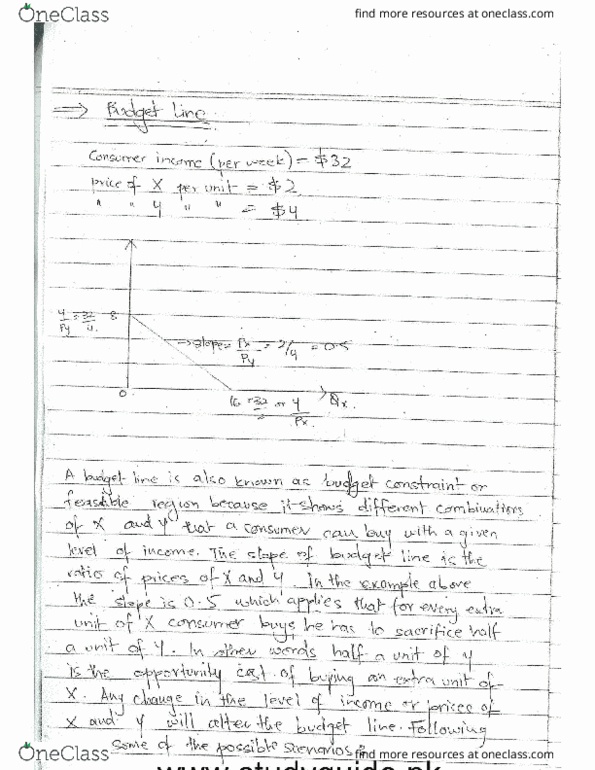 OneClass
find more resources at oneclass.com
⇒ Budget Line
Consumer income (per week) = $32
price of X per unit = $2
" " Y " " = $4
Y/Py = 32/4 8
→ slope = Px/Py = 2/4 = 0.5
0
16 = 32/2 or Y/Px
Qx.
A budget line is also known as budget constraint or
feasible region because it shows different combinations
of X and Y that a consumer can buy with a given
level of income. The slope of budget line is the
ratio of prices of X and Y. In the example above
the slope is 0.5 which applies that for every extra
unit of X consumer buys he has to sacrifice half
a unit of Y. In other words half a unit of Y
is the opportunity cost of buying an extra unit of
X. Any change in the level of income or prices of
X and Y will alter the budget line. Following
some of the possible scenarios:
OneClass
find more resources at oneclass.com
www.studyguide.pk